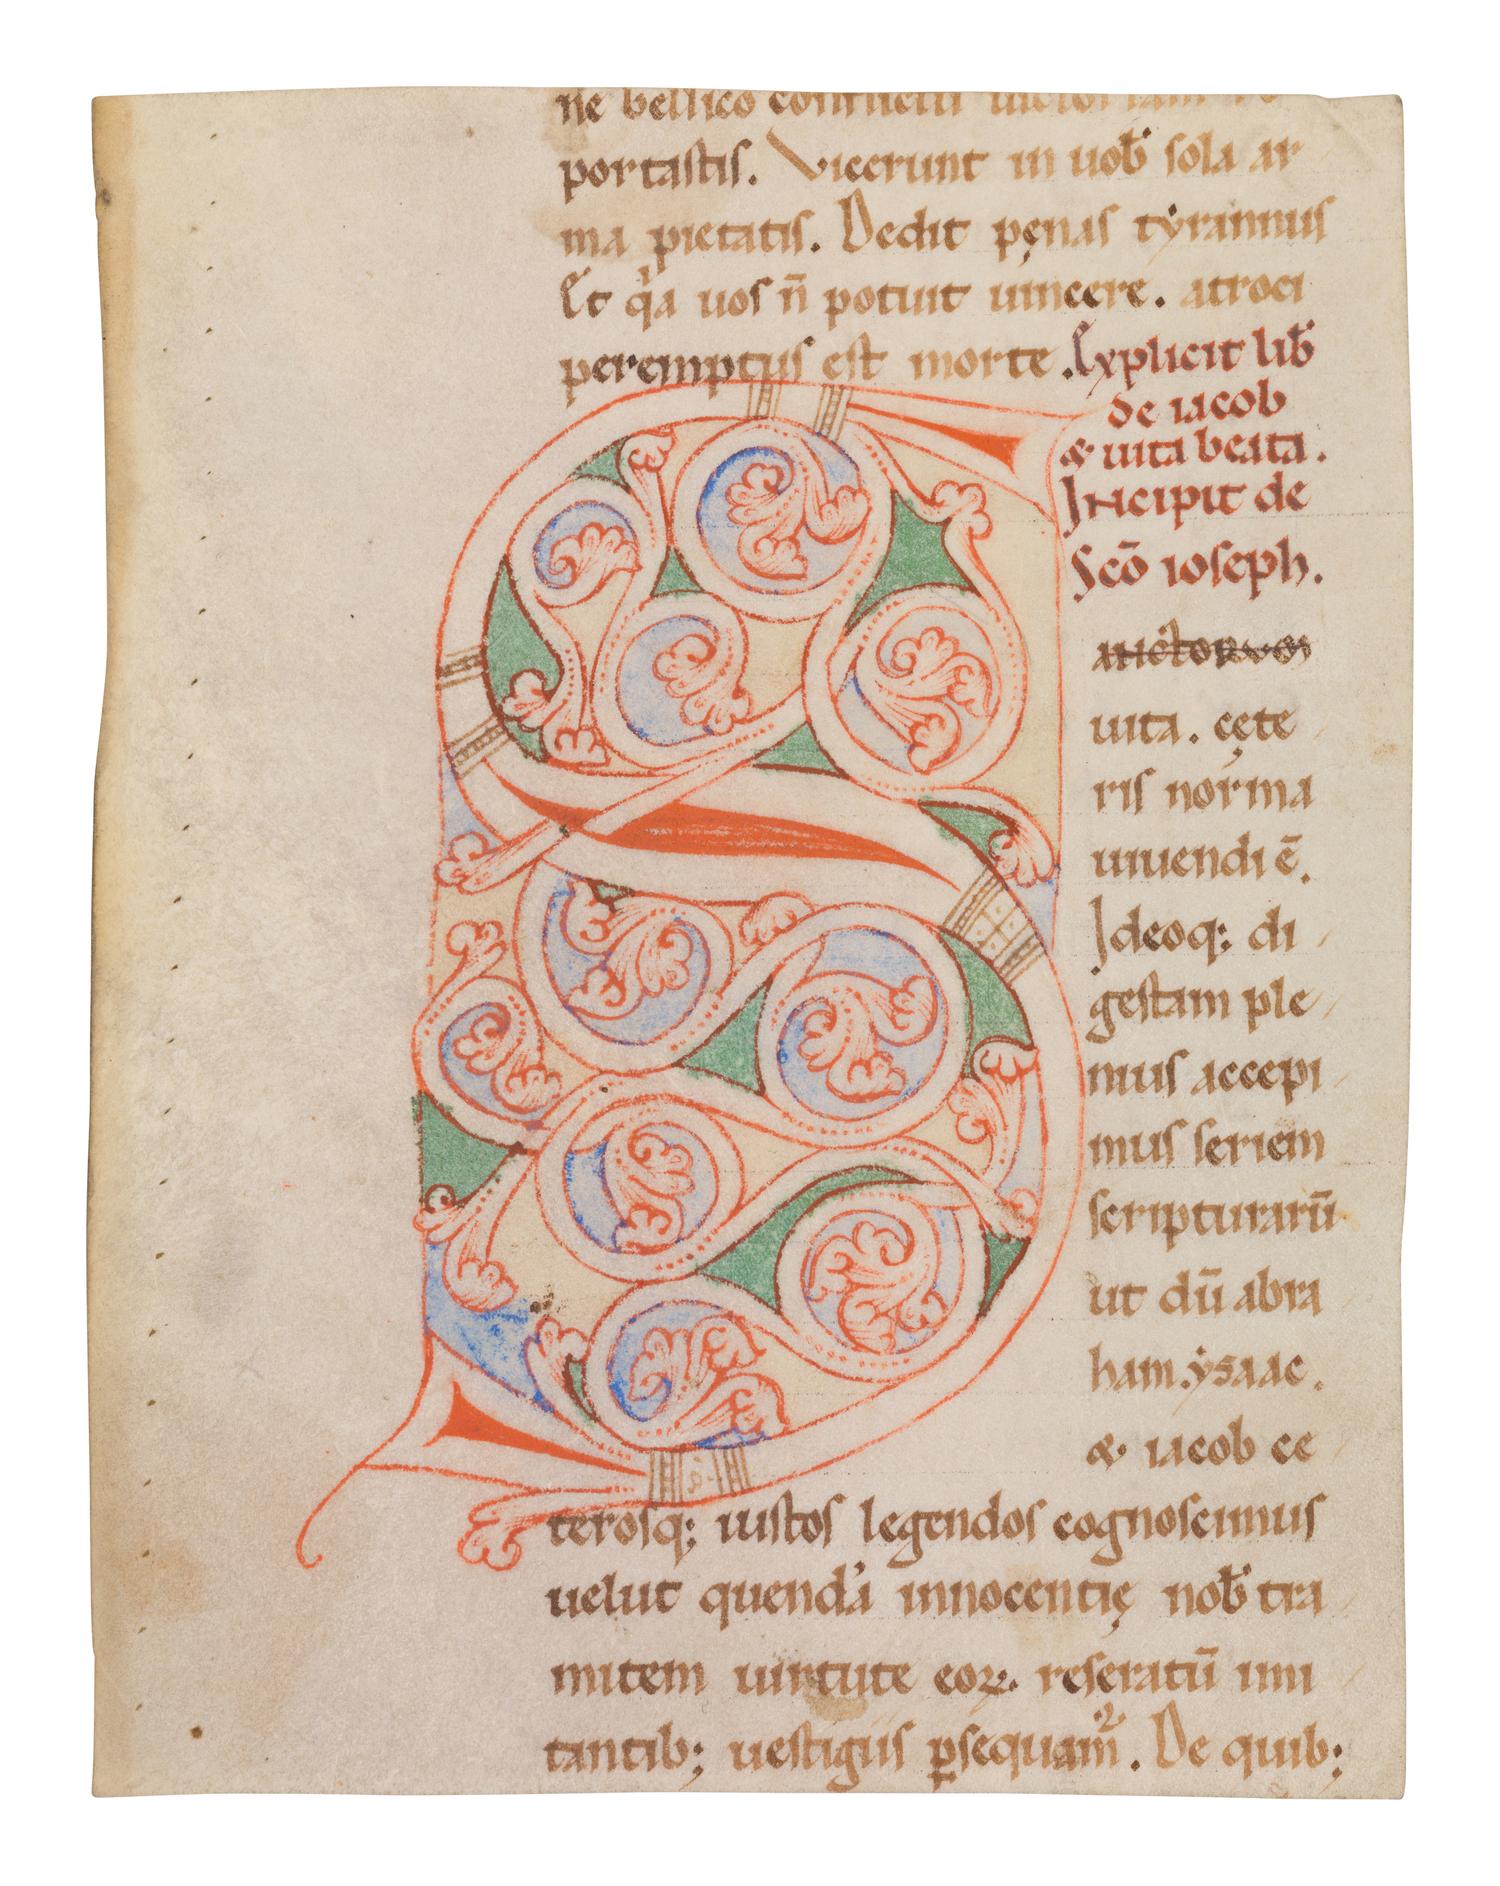 ne bellico conflictu uictoriam re
portastis. Vicerunt in uob̄ sola ar
ma pietatis. Dedit pęnas tẏrannus
Et qͥa uos n̄ potuit uincere. atroci
peremptus est morte. Explicit lib̄
de iacob
& uita beata.
Incipit de
Scō ioseph.
S
uita. cęte
ris norma
uiuendi ē.
Ideoq; di
gestam ple
nius accepi
mus seriem
scripturarū
ut dū abra
ham. ẏsaac.
& iacob ce
terosq; iustos legendos cognoscimus
uelut quendā innocentię nob̄ tra
mitem uirtute eoꝝ. reseratū imi
tantib; uestigiis ꝑsequam̄. De quib;